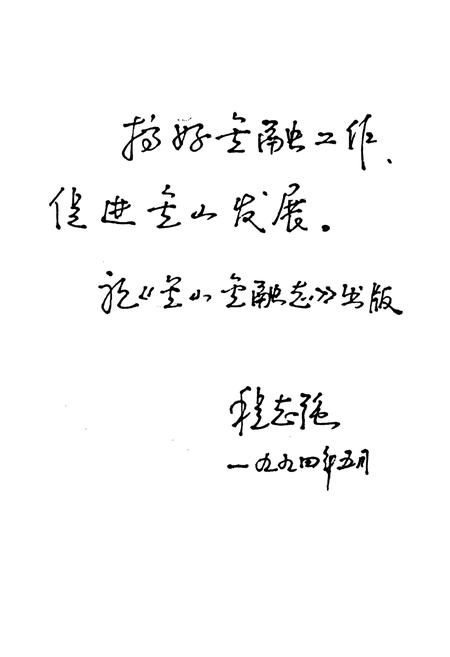 搞好金融工作、
促进金山发展。
祝《金山金融志》出版
程志强
一九九四年五月